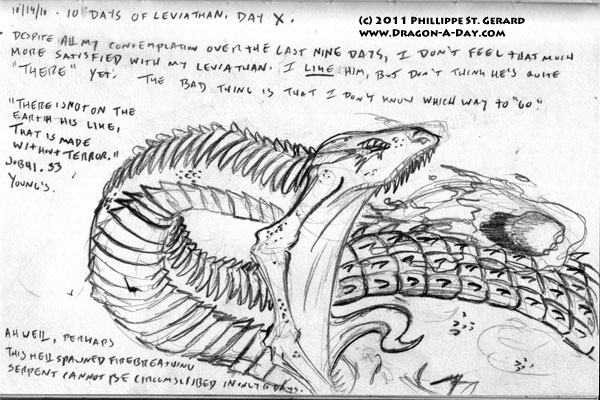 10/14/10 - 10 DAYS OF LEVIATHAN, DAY X.
(C) 2011 PHILLIPPE ST. GERARD
WWW.DRAGON-A-DAY.COM
DESPITE ALL MY CONTEMPLATION OVER THE LAST NINE DAYS, I DON'T FEEL THAT MUCH
MORE SATISFIED WITH MY LEVIATHAN. I LIKE HIM, BUT DON'T THINK HE'S QUITE
"THERE" YET. THE BAD THING IS THAT I DON'T KNOW WHICH WAY TO "GO."
"THERE IS NOT ON THE
EARTH HIS LIKE,
THAT IS MADE
WITHOUT TERROR."
JOB 41.33,
YOUNG'S.
AH WELL, PERHAPS
THIS HELL SPAWNED FIREBREATHING
SERPENT CANNOT BE CIRCUMSCRIBED IN ONLY 10 DAYS.